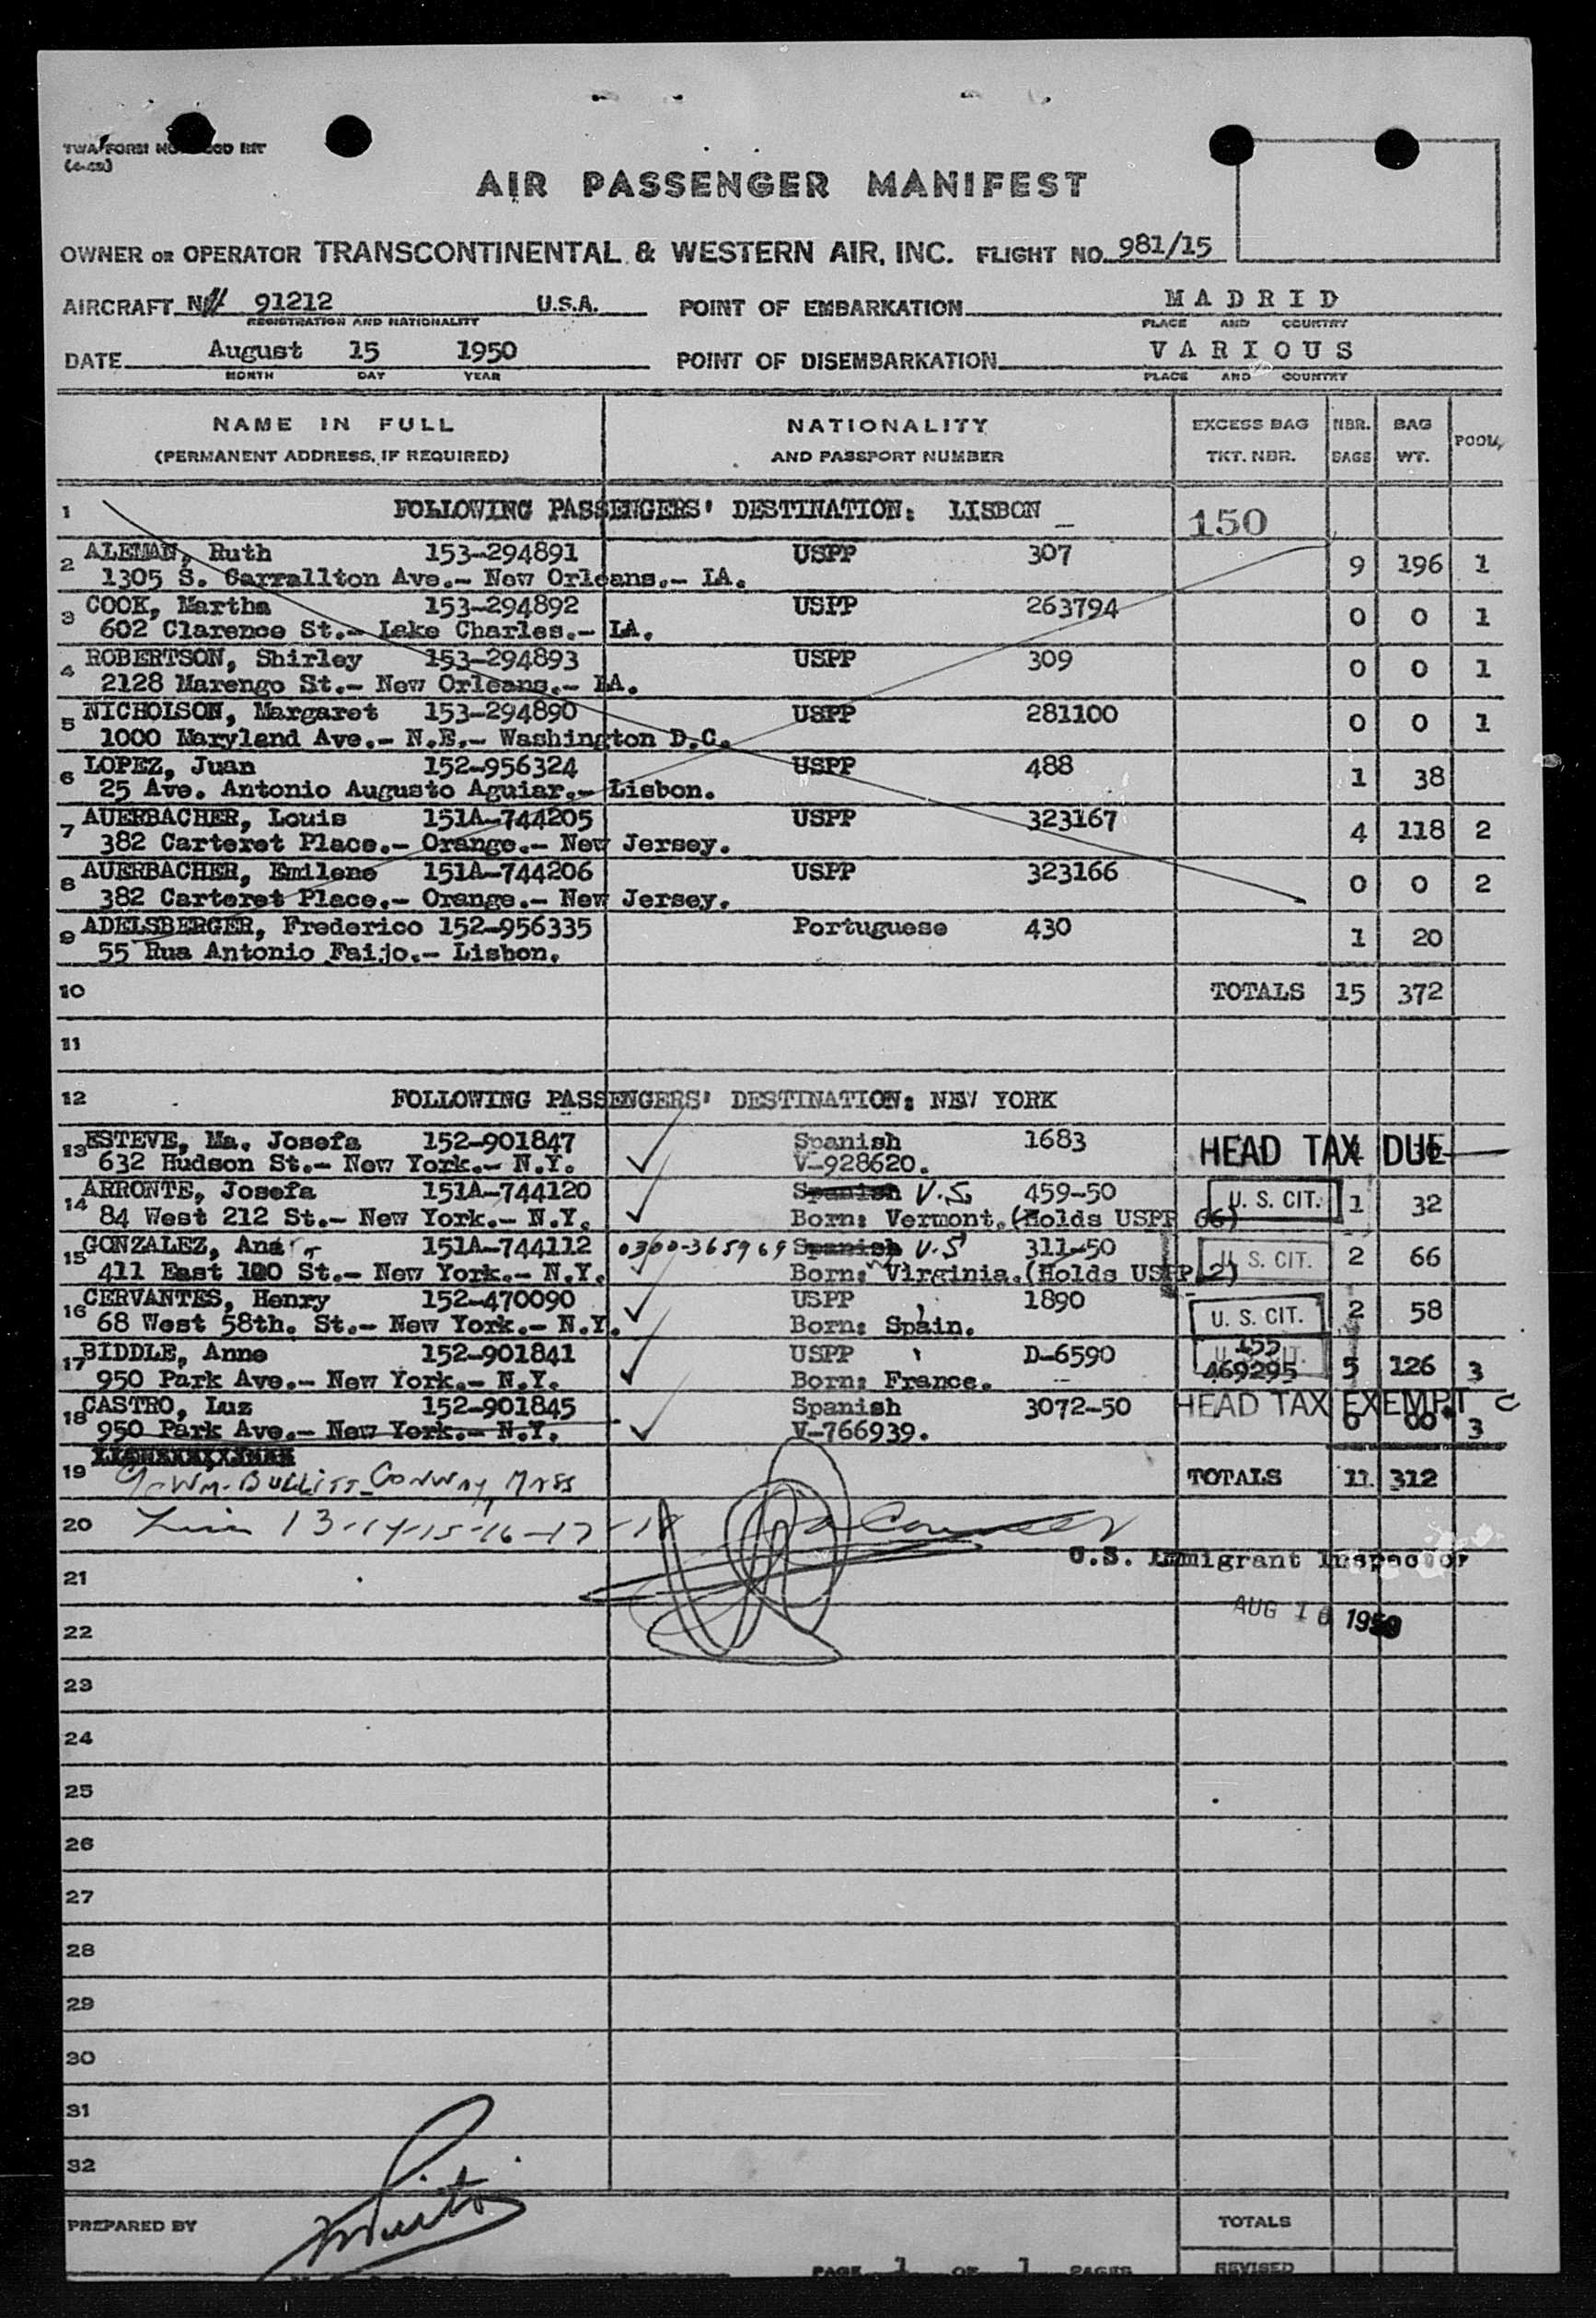 TWA FORM
AIR PASSENGER MANIFEST
OWNER OR OPERATOR TRANSCONTINENTAL & WESTERN AIR, INC. FLIGHT NO. 981/15
AIRCRAFT N 91212 U.S.A. POINT OF EMBARKATION MADRID
REGISTRATION AND NATIONALITY PLACE AND COUNTRY
DATE August 15 1950 POINT OF DISEMBARKATION VARIOUS
MONTH DAY YEAR PLACE AND COUNTRY
NAME IN FULL NATIONALITY EXCESS BAG NBR. BAG POOL
(PERMANENT ADDRESS, IF REQUIRED) AND PASSPORT NUMBER TKT. NBR. BAGS WT.
1 FOLLOWING PASSENGERS' DESTINATION: LISBON 150
2 ALEMAN, Ruth 153-294891 USPP 307 9 196 1
1305 S. Carrallton Ave.- New Orleans.- LA.
3 COOK, Martha 153-294892 USPP 263794 0 0 1
602 Clarence St.- Lake Charles.- LA.
4 ROBERTSON, Shirley 153-294893 USPP 309 0 0 1
2128 Marengo St.- New Orleans.- LA.
5 NICHOLSON, Margaret 153-294890 USPP 281100 0 0 1
1000 Maryland Ave.- N.E.- Washington D.C.
6 LOPEZ, Juan 152-956324 USPP 488 1 38
25 Ave. Antonio Augusto Aguiar.- Lisbon.
7 AUERBACHER, Louis 151A-744205 USPP 323167 4 118 2
382 Carteret Place.- Orange.- New Jersey.
8 AUERBACHER, Emilene 151A-744206 USPP 323166 0 0 2
382 Carteret Place.- Orange.- New Jersey.
9 ADELSBERGER, Frederico 152-956335 Portuguese 430 1 20
55 Rua Antonio Faijo.- Lisbon.
10 TOTALS 15 372
11
12 FOLLOWING PASSENGERS' DESTINATION: NEW YORK
13 ESTEVE, Ma. Josefa 152-901847 Spanish 1683 HEAD TAX DUE
632 Hudson St.- New York.- N.Y. V-928620.
14 ARRONTE, Josefa 151A-744120 Spanish U.S. 459-50 U. S. CIT. 1 32
84 West 212 St.- New York.- N.Y. Born: Vermont.(Holds USPP 66)
15 GONZALEZ, Ana 151A-744112 0300-365969 Spanish U.S 311-50 U. S. CIT. 2 66
411 East 100 St.- New York.- N.Y. Born: Virginia.(Holds USPP 2)
16 CERVANTES, Henry 152-470090 USPP 1890 U. S. CIT. 2 58
68 West 58th. St.- New York.- N.Y. Born: Spain.
17 BIDDLE, Anne 152-901841 USPP D-6590 155 5 126 3
950 Park Ave.- New York.- N.Y. Born: France. 469295
18 CASTRO, Luz 152-901845 Spanish 3072-50 HEAD TAX EXEMPT C
950 Park Ave.- New York.- N.Y. V-766939. 0 00 3
19 c/o Wm. Bullitt-Conway, Mass TOTALS 11 312
20 13-14-15-16-17-18
U.S. Immigrant Inspector
21
AUG 16 1950
22
23
24
25
26
27
28
29
30
31
32
PREPARED BY TOTALS
PAGE 1 OF 1 PAGES REVISED